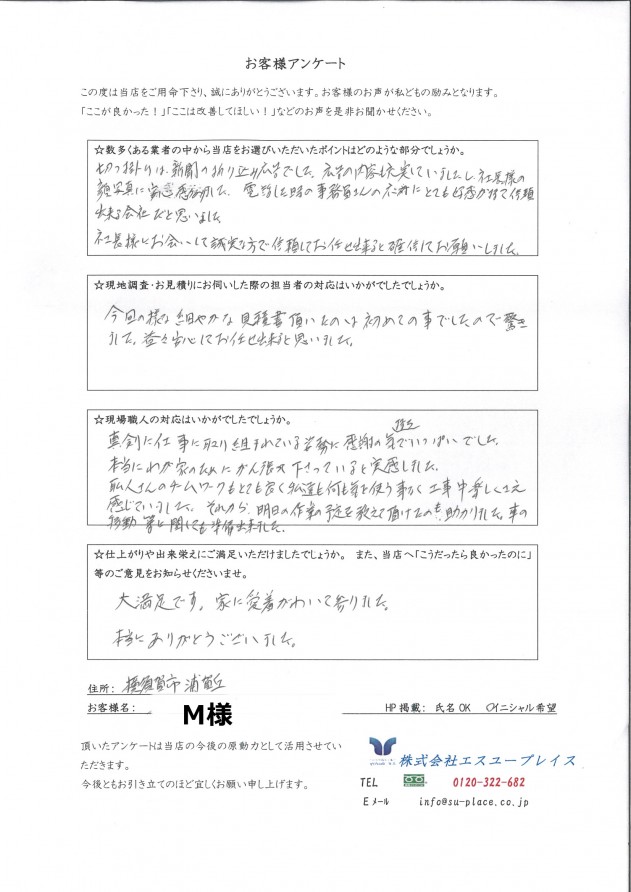 お客様アンケート
この度は当店をご用命下さり、誠にありがとうございます。お客様のお声が私どもの励みとなります。
「ここが良かった！」「ここは改善してほしい！」などのお声を是非お聞かせください。
☆数多くある業者の中から当店をお選びいただいたポイントはどのような部分でしょうか。
切っ掛けは、新聞の折り込み広告でした。広告の内容も充実していましたし、社長様の
顔写真に 感 した。電話した時の事務員さんの応対にとても好感が持て信頼
出来る会社だと思いました。
社長様にお会いして誠実な方で信頼してお任せ出来ると確信してお願いしました。
☆現地調査・お見積りにお伺いした際の担当者の対応はいかがでしたでしょうか。
今回の様な細やかな見積書頂いたのは初めての事でしたので驚き
ました。益々安心してお任せ出来ると思いました。
☆現場職人の対応はいかがでしたでしょうか。
真剣に仕事に取り組まれている姿勢に感謝の気 でいっぱいでした。
本当にわが家のためにがん張って下さっていると実感しました。
職人さんのチームワークもとても良く私達も何も気を使う事なく工事中楽しくさえ
感じていました。それから、明日の作業の予定を教えて頂けたのも助かりました。車の
移動等に関しても準備出来ました。
☆仕上がりや出来栄えにご満足いただけましたでしょうか。 また、当店へ「こうだったら良かったのに」
等のご意見をお知らせくださいませ。
大満足です。家に愛着がわいて参りました。
本当にありがとうございました。
住所: 横須賀市 浦賀丘
お客様名: M様
HP掲載: 氏名OK イニシャル希望
頂いたアンケートは当店の今後の原動力として活用させてい
ただきます。
今後ともお引き立てのほど宜しくお願い申し上げます。
株式会社エスユープレイス
TEL 0120-322-682
Eメール info@su-place.co.jp